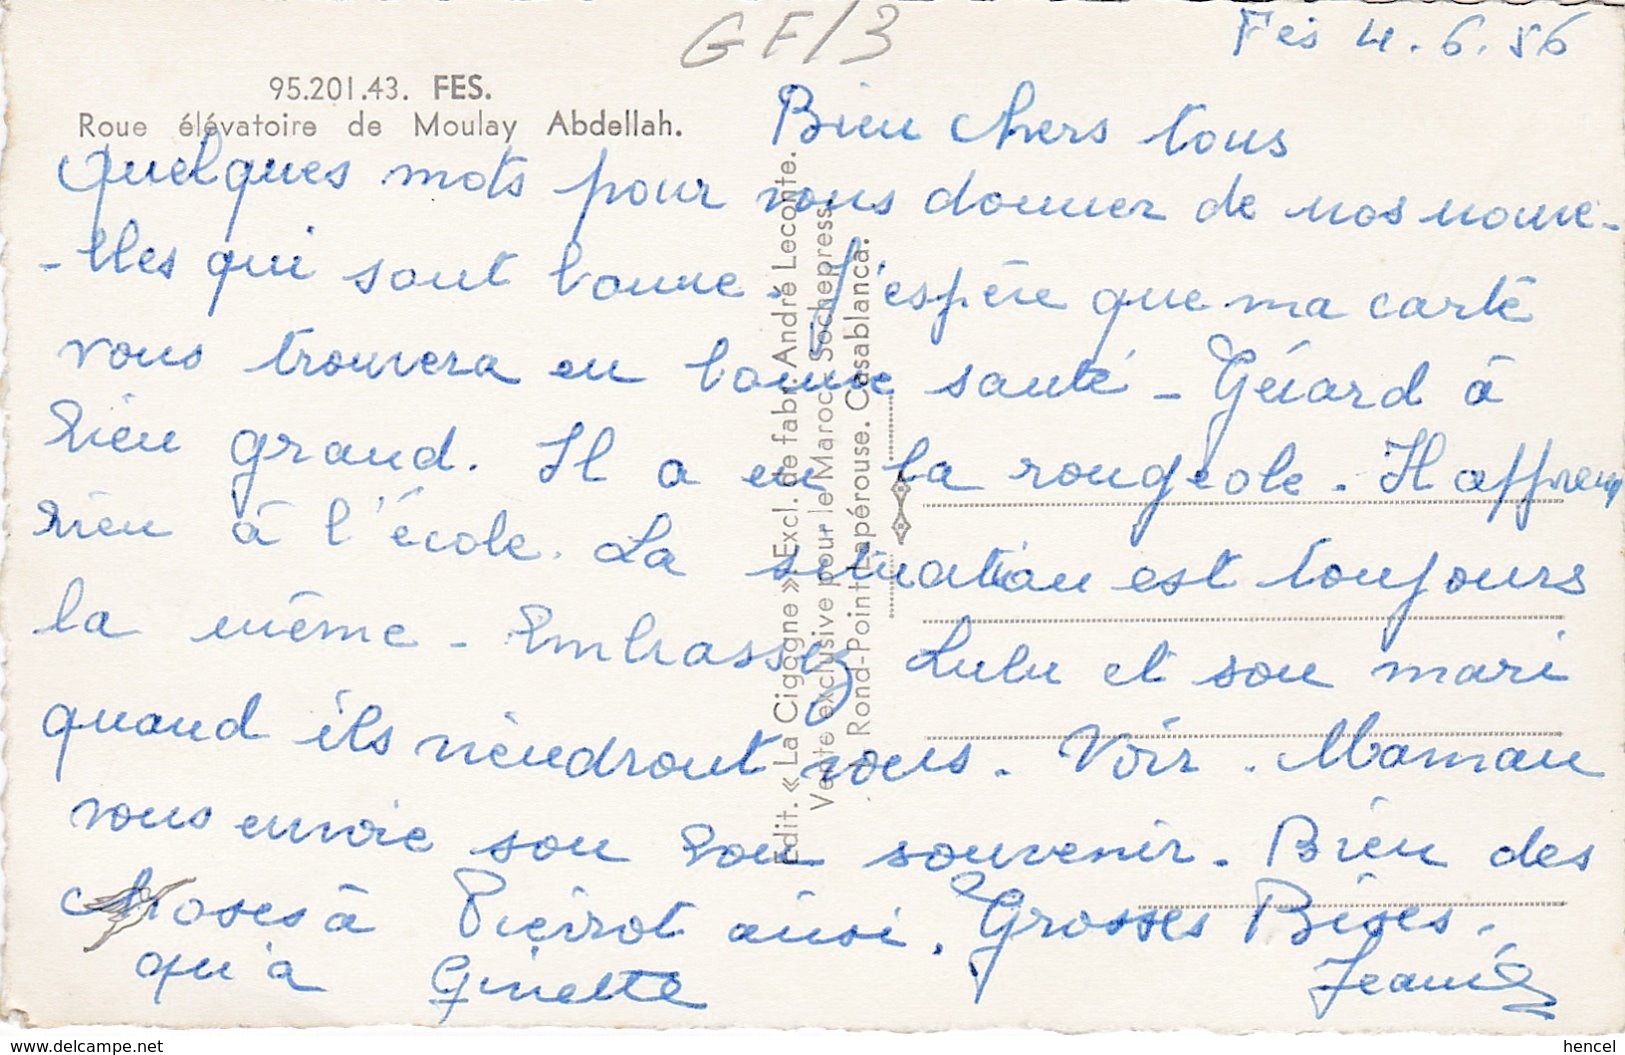 GF/3
Fes 4.6.56
95.201.43. FES.
Roue élévatoire de Moulay Abdellah.
Bien chers tous
Quelques mots pour vous donner de nos nouve-
-lles qui sont bonne. J'espère que ma carte
vous trouvera en bonne santé - Gérard à
bien grand. Il a eu la rougeole. Il apprend
bien à l'école. La situation est toujours
la même - Embrassez Lulu et son mari
quand ils viendront vous. Voir. Maman
vous envoie son bon souvenir. Bien des
choses à Pierrot ainsi. Grosses Bises.
qu'à Ginette
Edit. « La Cigogne » Excl. de fabr. André Leconte.
Vente exclusive pour le Maroc : Sochepress
Rond-Point Lapérouse. Casablanca.
www.delcampe.net
hencel